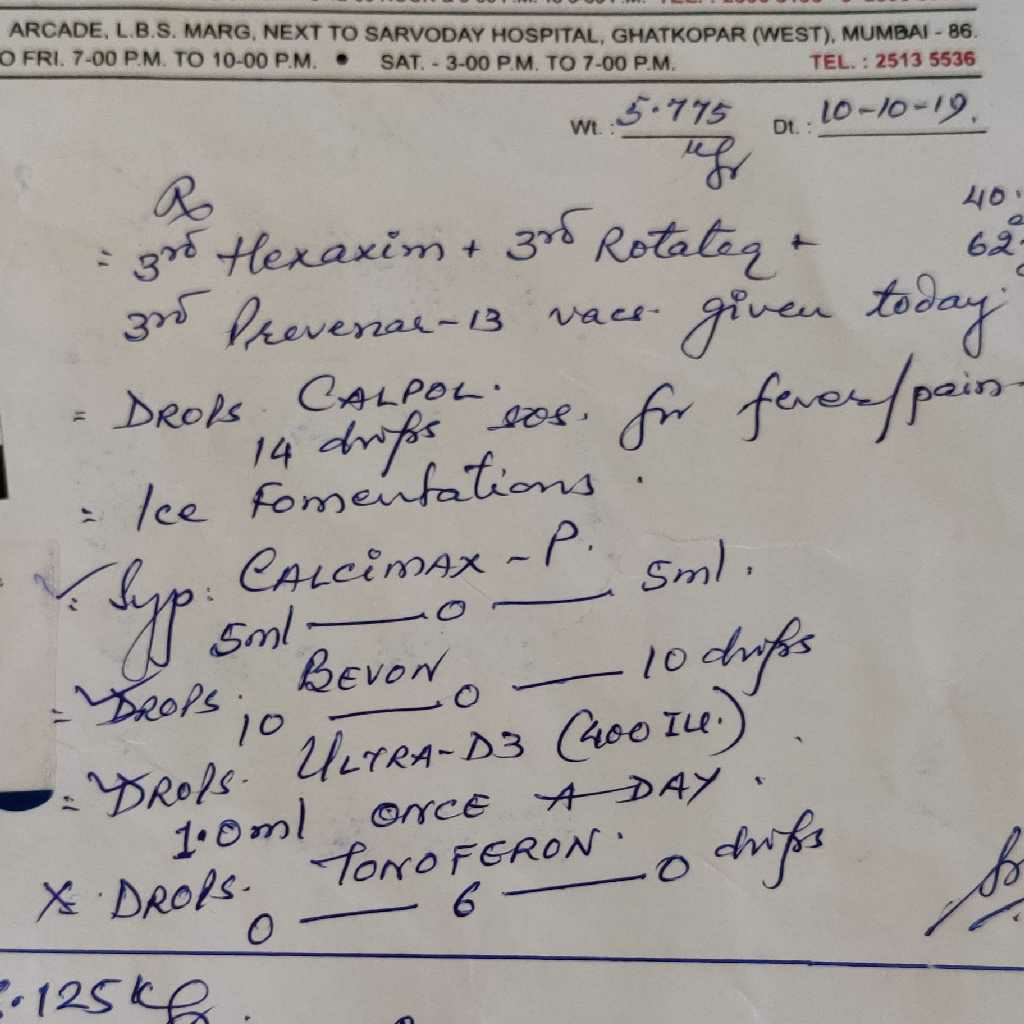 ARCADE, L.B.S. MARG, NEXT TO SARVODAY HOSPITAL, GHATKOPAR (WEST), MUMBAI - 86.
O FRI. 7-00 P.M. TO 10-00 P.M. • SAT. - 3-00 P.M. TO 7-00 P.M. TEL. : 2513 5536
Wt. : 5.775 Dt. : 10-10-19.
kgr
Rx
40.
= 3rd Hexaxim + 3rd Rotateq + 62
3rd Prevenar-13 vacc. given today.
= DROPS. CALPOL.
14 drops sos. for fever/pain
= Ice Fomentations.
Syp: CALCIMAX - P.
5ml — 0 — 5ml.
= DROPS. BEVON
10 — 0 — 10 drops
= DROPS. ULTRA-D3 (400 IU.)
1.0ml ONCE A DAY.
X DROPS. TONOFERON.
0 — 6 — 0 drops
.125 kg